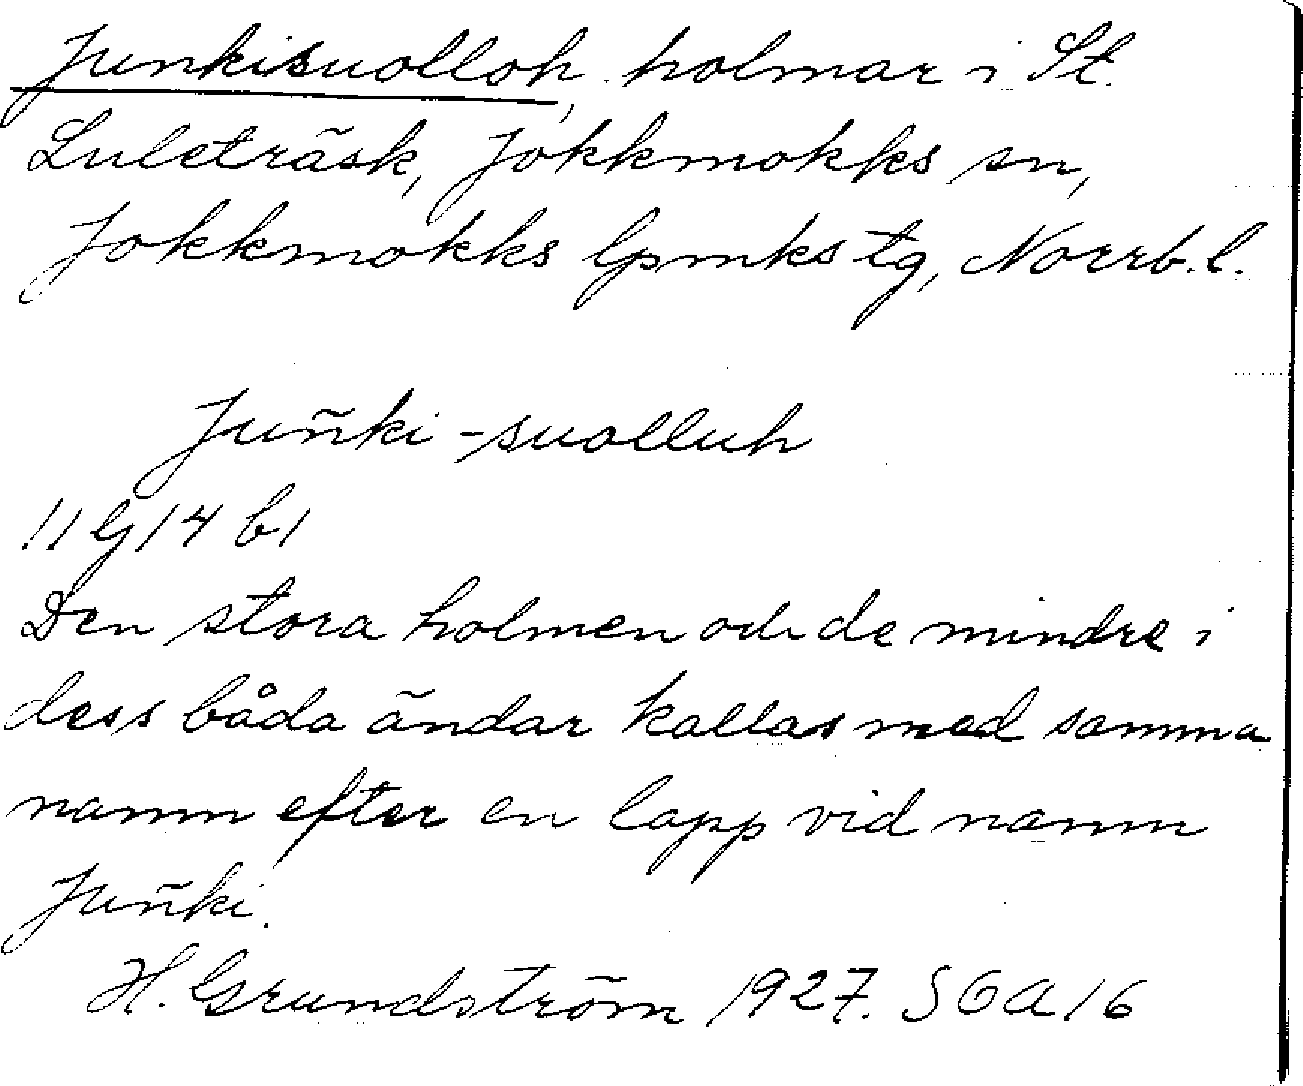 Junkisuolloh, holmar i St.
Luleträsk, Jokkmokks sn,
Jokkmokks lpmks tg, Norrb. l.
Juñki-suolluh
11 G 14 b1
Den stora holmen och de mindre i
dess båda ändar kallas med samma
namn efter en lapp vid namn
Juñki.
H. Grundström 1927. SOA 16